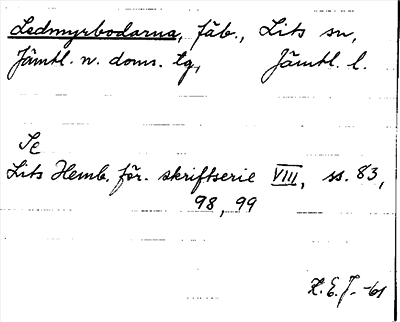 Ledmyrbodarna, fäb., Lits sn,
Jämtl. n. doms. tg, Jämtl. l.
Se
Lits Hemb. för. skriftserie VIII, ss. 83,
98, 99
Z. E. J. -61